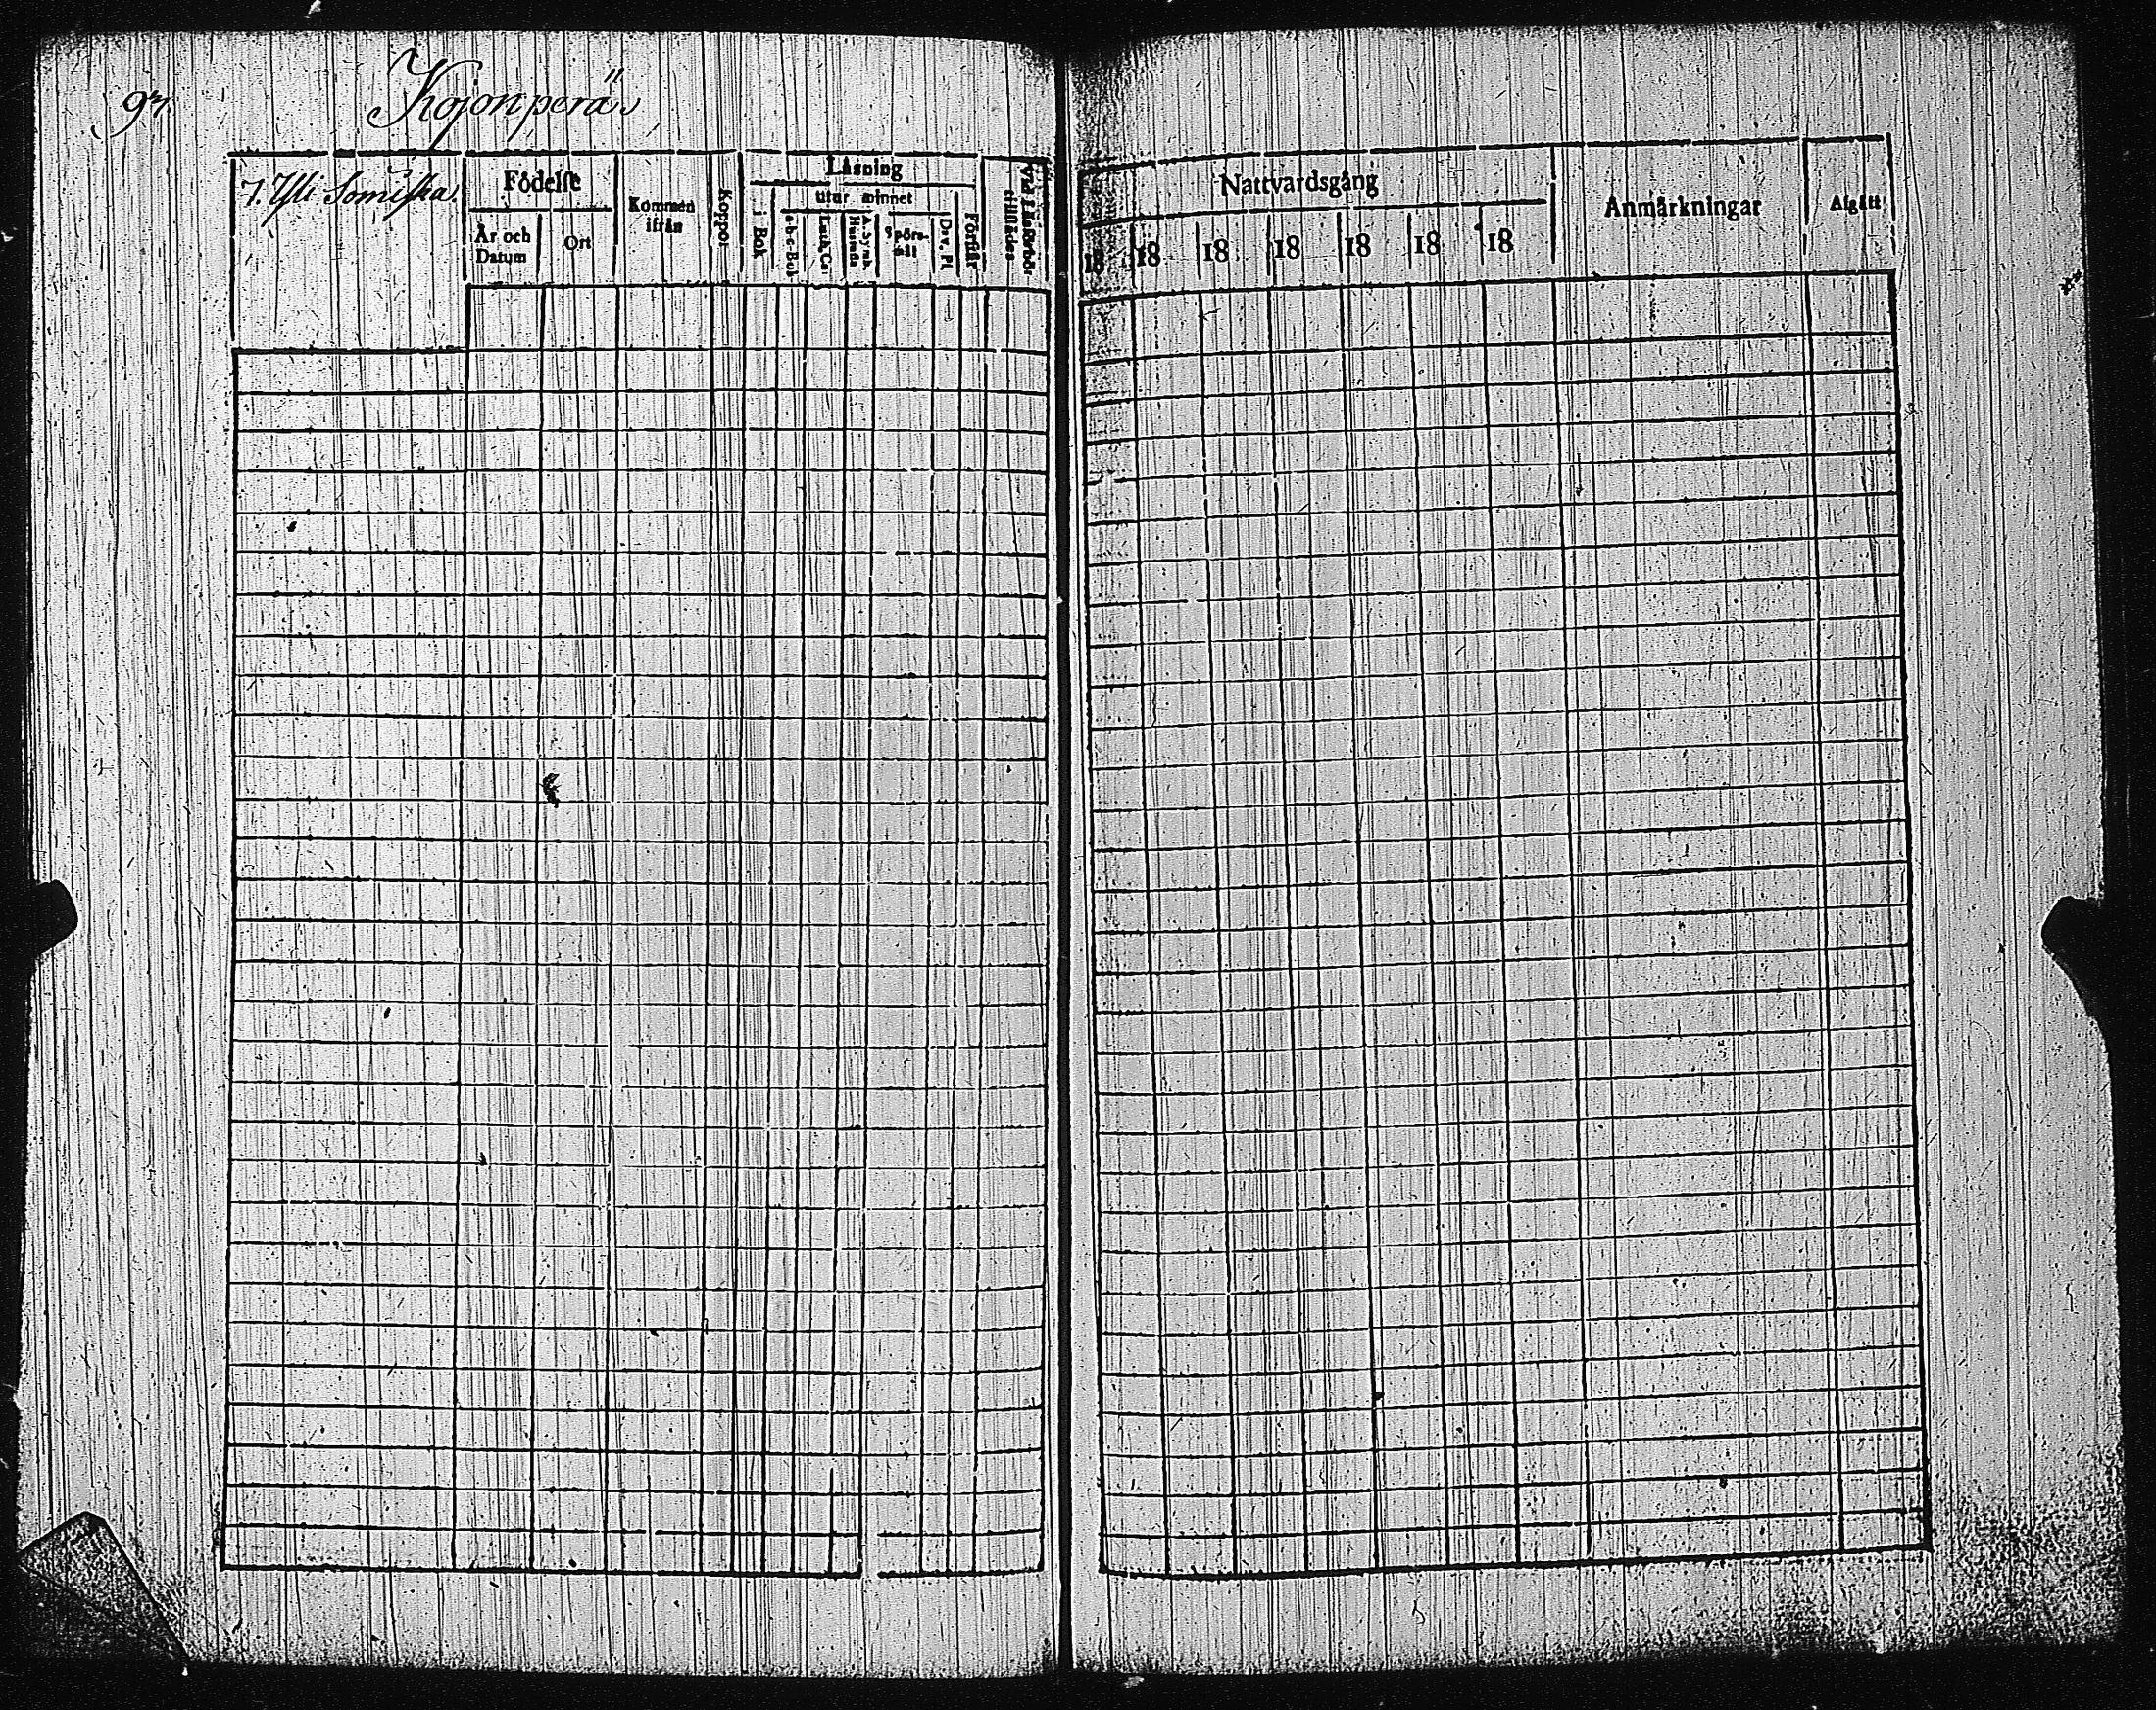 97.
Kojonperä
7. Yli Somiska.
Födelse
År och Datum
Ort
Kommen ifrån
Koppor
Läsning
i Bok
utur minnet
a-b-c-Bok
Luth. Ca.
A. Symb. Hustafl.
Spörs-mål
Dav. Ps.
Förstår
Vid Läsförhör tillstädes
Nattvardsgång
18 18 18 18 18 18 18
Anmärkningar
Afgått